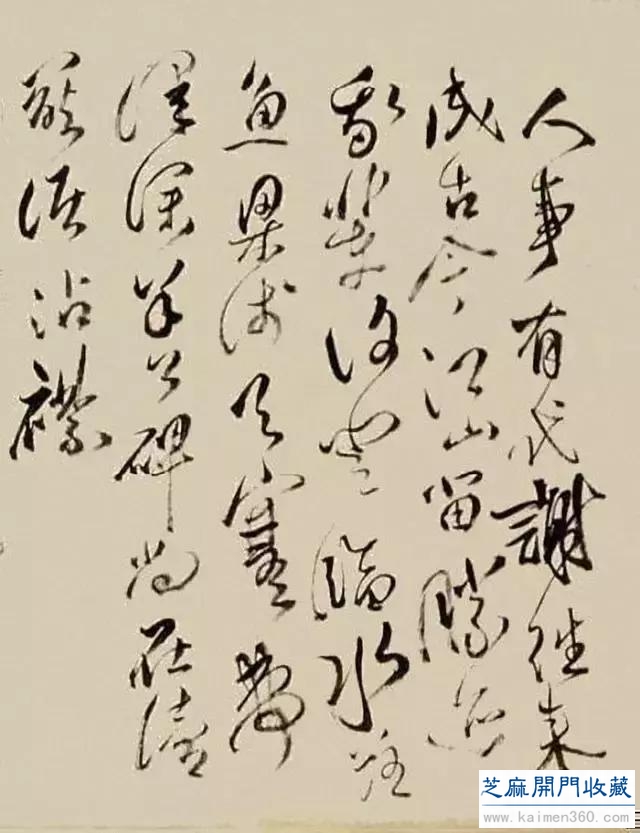 人事有代謝往來
成古今江山留勝迹
我輩復登臨水落
魚梁淺天寒夢
澤深羊公碑尚在讀
罷淚沾襟
芝麻開門收藏
www.kaimen360.com